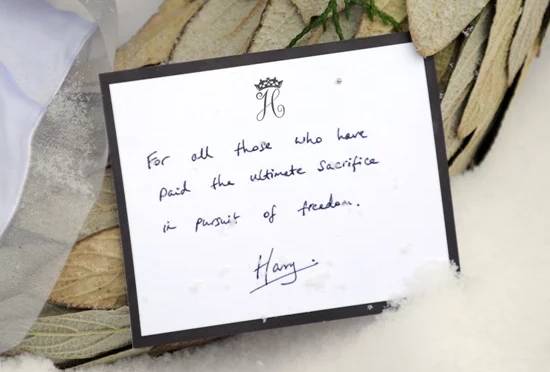 H
For all those who have
paid the ultimate sacrifice
in pursuit of freedom.
Harry.